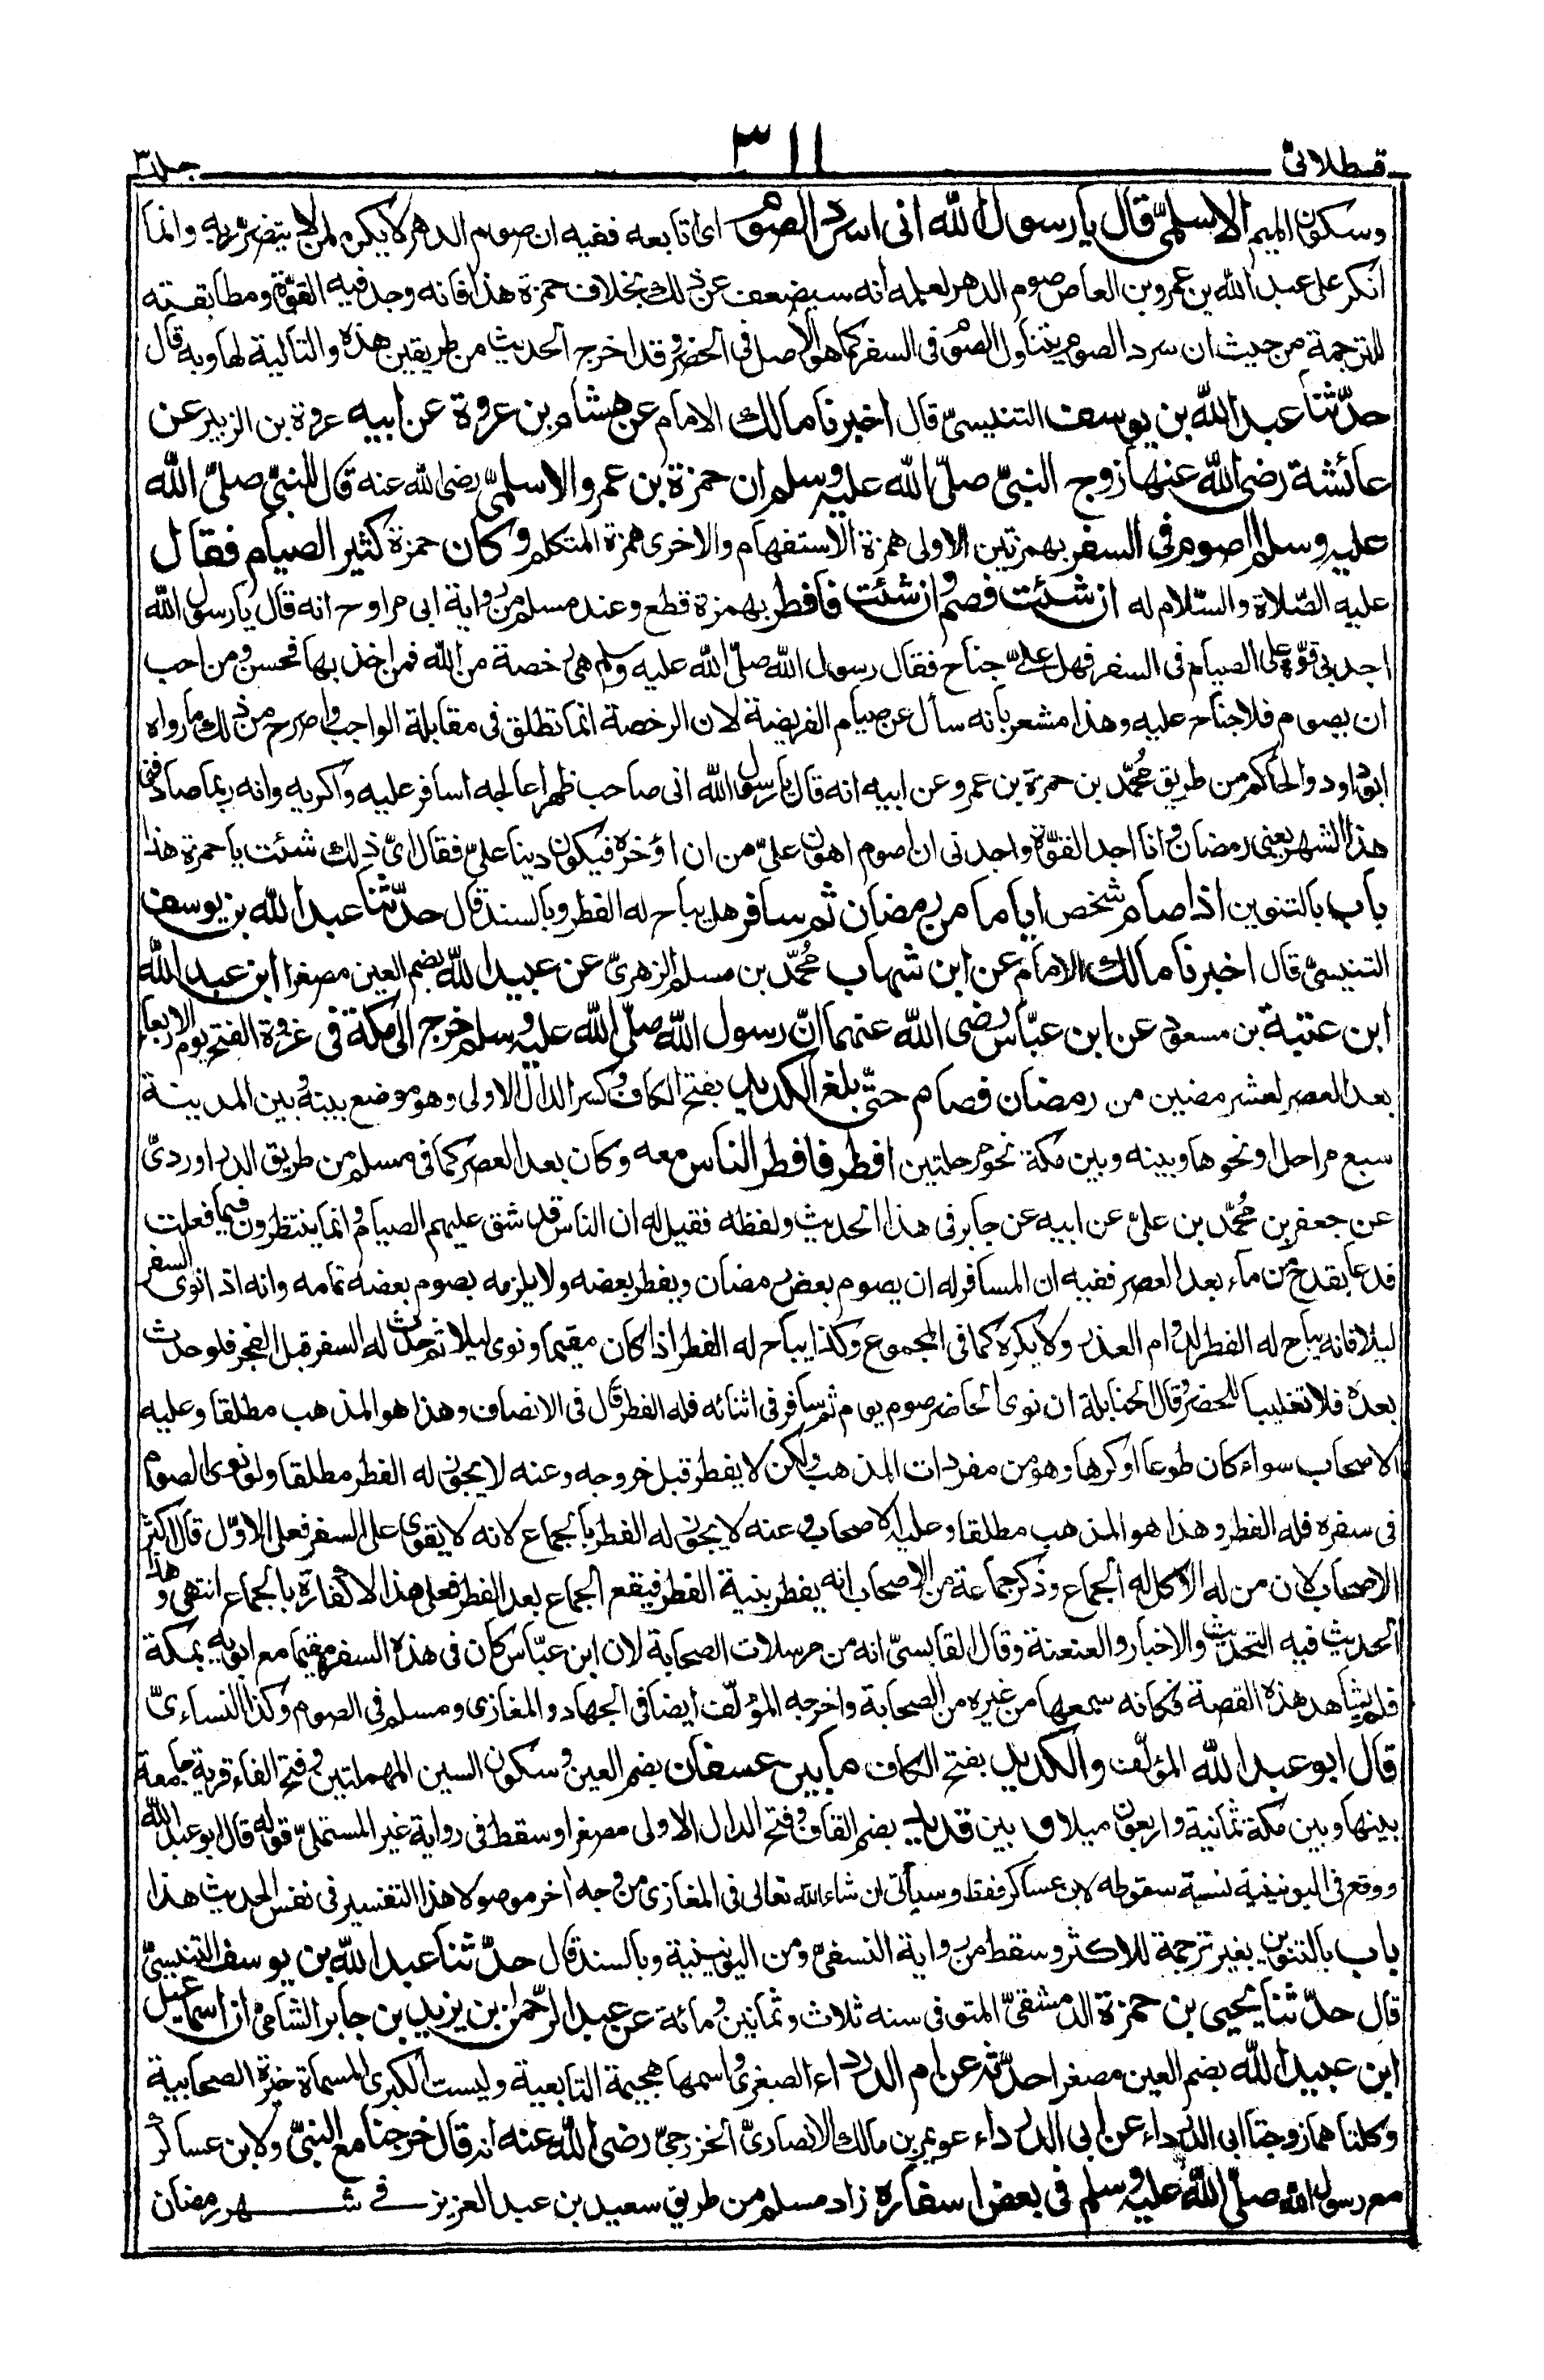 قسطلانی ٣١١ جلد٣
وسكون الميم الاسلمىّ قال يا رسول الله انى اسرد الصوم اى اتابعه ففيه ان صوم الدهر لا يكره لمن لا يتضرّر به وانما
انكر على عبد الله بن عمرو بن العاص صوم الدهر لعلمه انه سيضعف عن ذلك بخلاف حمزة هذا فانه وجد فيه القوّة ومطابقته
للترجمة من حيث ان سرد الصوم يتناول الصوم فى السفر كما هو الاصل فى الحضر وقد اخرج الحديث من طريقين هذه والتالية لها وبه قال
حدّثنا عبد الله بن يوسف التنيسىّ قال اخبرنا مالك الامام عن هشام بن عروة عن ابيه عروة بن الزبير عن
عائشة رضى الله عنها زوج النبىّ صلّى الله عليه وسلم ان حمزة بن عمرو الاسلمىّ رضى الله عنه قال للنبىّ صلّى الله
عليه وسلم أاصوم فى السفر بهمزتين الاولى همزة الاستفهام والاخرى همزة المتكلم وكان حمزة كثير الصيام فقال
عليه الصّلاة والسّلام له ان شئت فصم وان شئت فافطر بهمزة قطع وعند مسلم من رواية ابى مراوح انه قال يا رسول الله
اجد بى قوّة على الصيام فى السفر فهل علىّ جناح فقال رسول الله صلّى الله عليه وسلم هى رخصة من الله فمن اخذ بها فحسن ومن احب
ان يصوم فلا جناح عليه وهذا مشعر بانه سأل عن صيام الفريضة لان الرخصة انما تطلق فى مقابلة الواجب واصرح من ذلك ما رواه
ابو داود والحاكم من طريق محمّد بن حمزة بن عمرو عن ابيه انه قال يا رسول الله انى صاحب ظهر اعالجه اسافر عليه واكريه وانه ربما صادفنى
هذا الشهر يعنى رمضان وانا اجد القوّة واجدنى ان اصوم اهون علىّ من ان اؤخره فيكون دينا علىّ فقال اىّ ذلك شئت يا حمزة هذا
باب بالتنوين اذا صام شخص اياما من رمضان ثم سافر هل يباح له الفطر وبالسند قال حدّثنا عبد الله بن يوسف
التنيسىّ قال اخبرنا مالك الامام عن ابن شهاب محمّد بن مسلم الزهرىّ عن عبيد الله بضم العين مصغرا ابن عبد الله
ابن عتبة بن مسعود عن ابن عبّاس رضى الله عنهما انّ رسول الله صلّى الله عليه وسلم خرج الى مكة فى غزوة الفتح يوم الاربعاء
بعد العصر لعشر مضين من رمضان فصام حتّى بلغ الكديد بفتح الكاف وكسر الدال الاولى وهو موضع بينه وبين المدينة
سبع مراحل او نحوها وبينه وبين مكة نحو مرحلتين افطر فافطر الناس معه وكان بعد العصر كما فى مسلم من طريق الدراوردىّ
عن جعفر بن محمّد بن علىّ عن ابيه عن جابر فى هذا الحديث ولفظه فقيل له ان الناس قد شق عليهم الصيام وانما ينتظرون فيما فعلت
فدعا بقدح من ماء بعد العصر ففيه ان المسافر له ان يصوم بعض رمضان ويفطر بعضه ولا يلزمه بصوم بعضه تمامه وانه اذا نوى السفر
ليلا فانه يباح له الفطر لدوام العذر ولا يكره كما فى المجموع وكذا يباح له الفطر اذا كان مقيما ونوى ليلا ثم حدث له السفر قبل الفجر فلو حدث
بعده فلا تغليبا للحضر وقال الحنابلة ان نوى الحاضر صوم يوم ثم سافر فى اثنائه فله الفطر قال فى الانصاف وهذا هو المذهب مطلقا وعليه
الاصحاب سواء كان طوعا او كرها وهو من مفردات المذهب ولكن لا يفطر قبل خروجه وعنه لا يجوز له الفطر مطلقا ولو نوى الصوم
فى سفره فله الفطر وهذا هو المذهب مطلقا وعليه الاصحاب وعنه لا يجوز له الفطر بالجماع لانه لا يقوى على السفر فعلى الاوّل قال اكثر
الاصحاب لان من له الاكل له الجماع وذكر جماعة من الاصحاب انه يفطر بنية الفطر فيقع الجماع بعد الفطر فعلى هذا لا كفارة بالجماع انتهى وهذا
الحديث فيه التحديث والاخبار والعنعنة وقال القابسىّ انه من مرسلات الصحابة لان ابن عبّاس كان فى هذه السفر مقيما مع ابويه بمكة
فلم يشاهد هذه القصة فكانه سمعها من غيره من الصحابة واخرجه المؤلّف ايضا فى الجهاد والمغازى ومسلم فى الصوم وكذا النساءىّ
قال ابو عبد الله المؤلّف والكديد بفتح الكاف ما بين عسفان بضم العين وسكون السين المهملتين وفتح الفاء قرية جامعة
بينها وبين مكة ثمانية واربعون ميلا و بين قديد بضم القاف وفتح الدال الاولى مصغرا وسقط فى رواية غير المستملىّ قوله قال ابو عبد الله
ووقع فى اليونينية نسبة سقوطه لابن عساكر فقط وسيأتى ان شاء الله تعالى فى المغازى من وجه آخر موصولا هذا التفسير فى نفس الحديث هذا
باب بالتنوين بغير ترجمة للاكثر وسقط من رواية النسفىّ ومن اليونينية وبالسند قال حدّثنا عبد الله بن يوسف التنيسىّ
قال حدّثنا يحيى بن حمزة الدمشقىّ المتوفى سنه ثلاث وثمانين ومائة عن عبد الرّحمن بن يزيد بن جابر الشامىّ ان اسماعيل
ابن عبيد الله بضم العين مصغرا حدّثه عن ام الدرداء الصغرى واسمها هجيمة التابعية وليست الكبرى المسماة خيرة الصحابية
وكلتاهما زوجتا ابى الدرداء عن ابى الدرداء عويمر بن مالك الانصارىّ الخزرجىّ رضى الله عنه انه قال خرجنا مع النبىّ ولابن عساكر
مع رسول الله صلّى الله عليه وسلم فى بعض اسفاره زاد مسلم من طريق سعيد بن عبد العزيز فى شهر رمضان